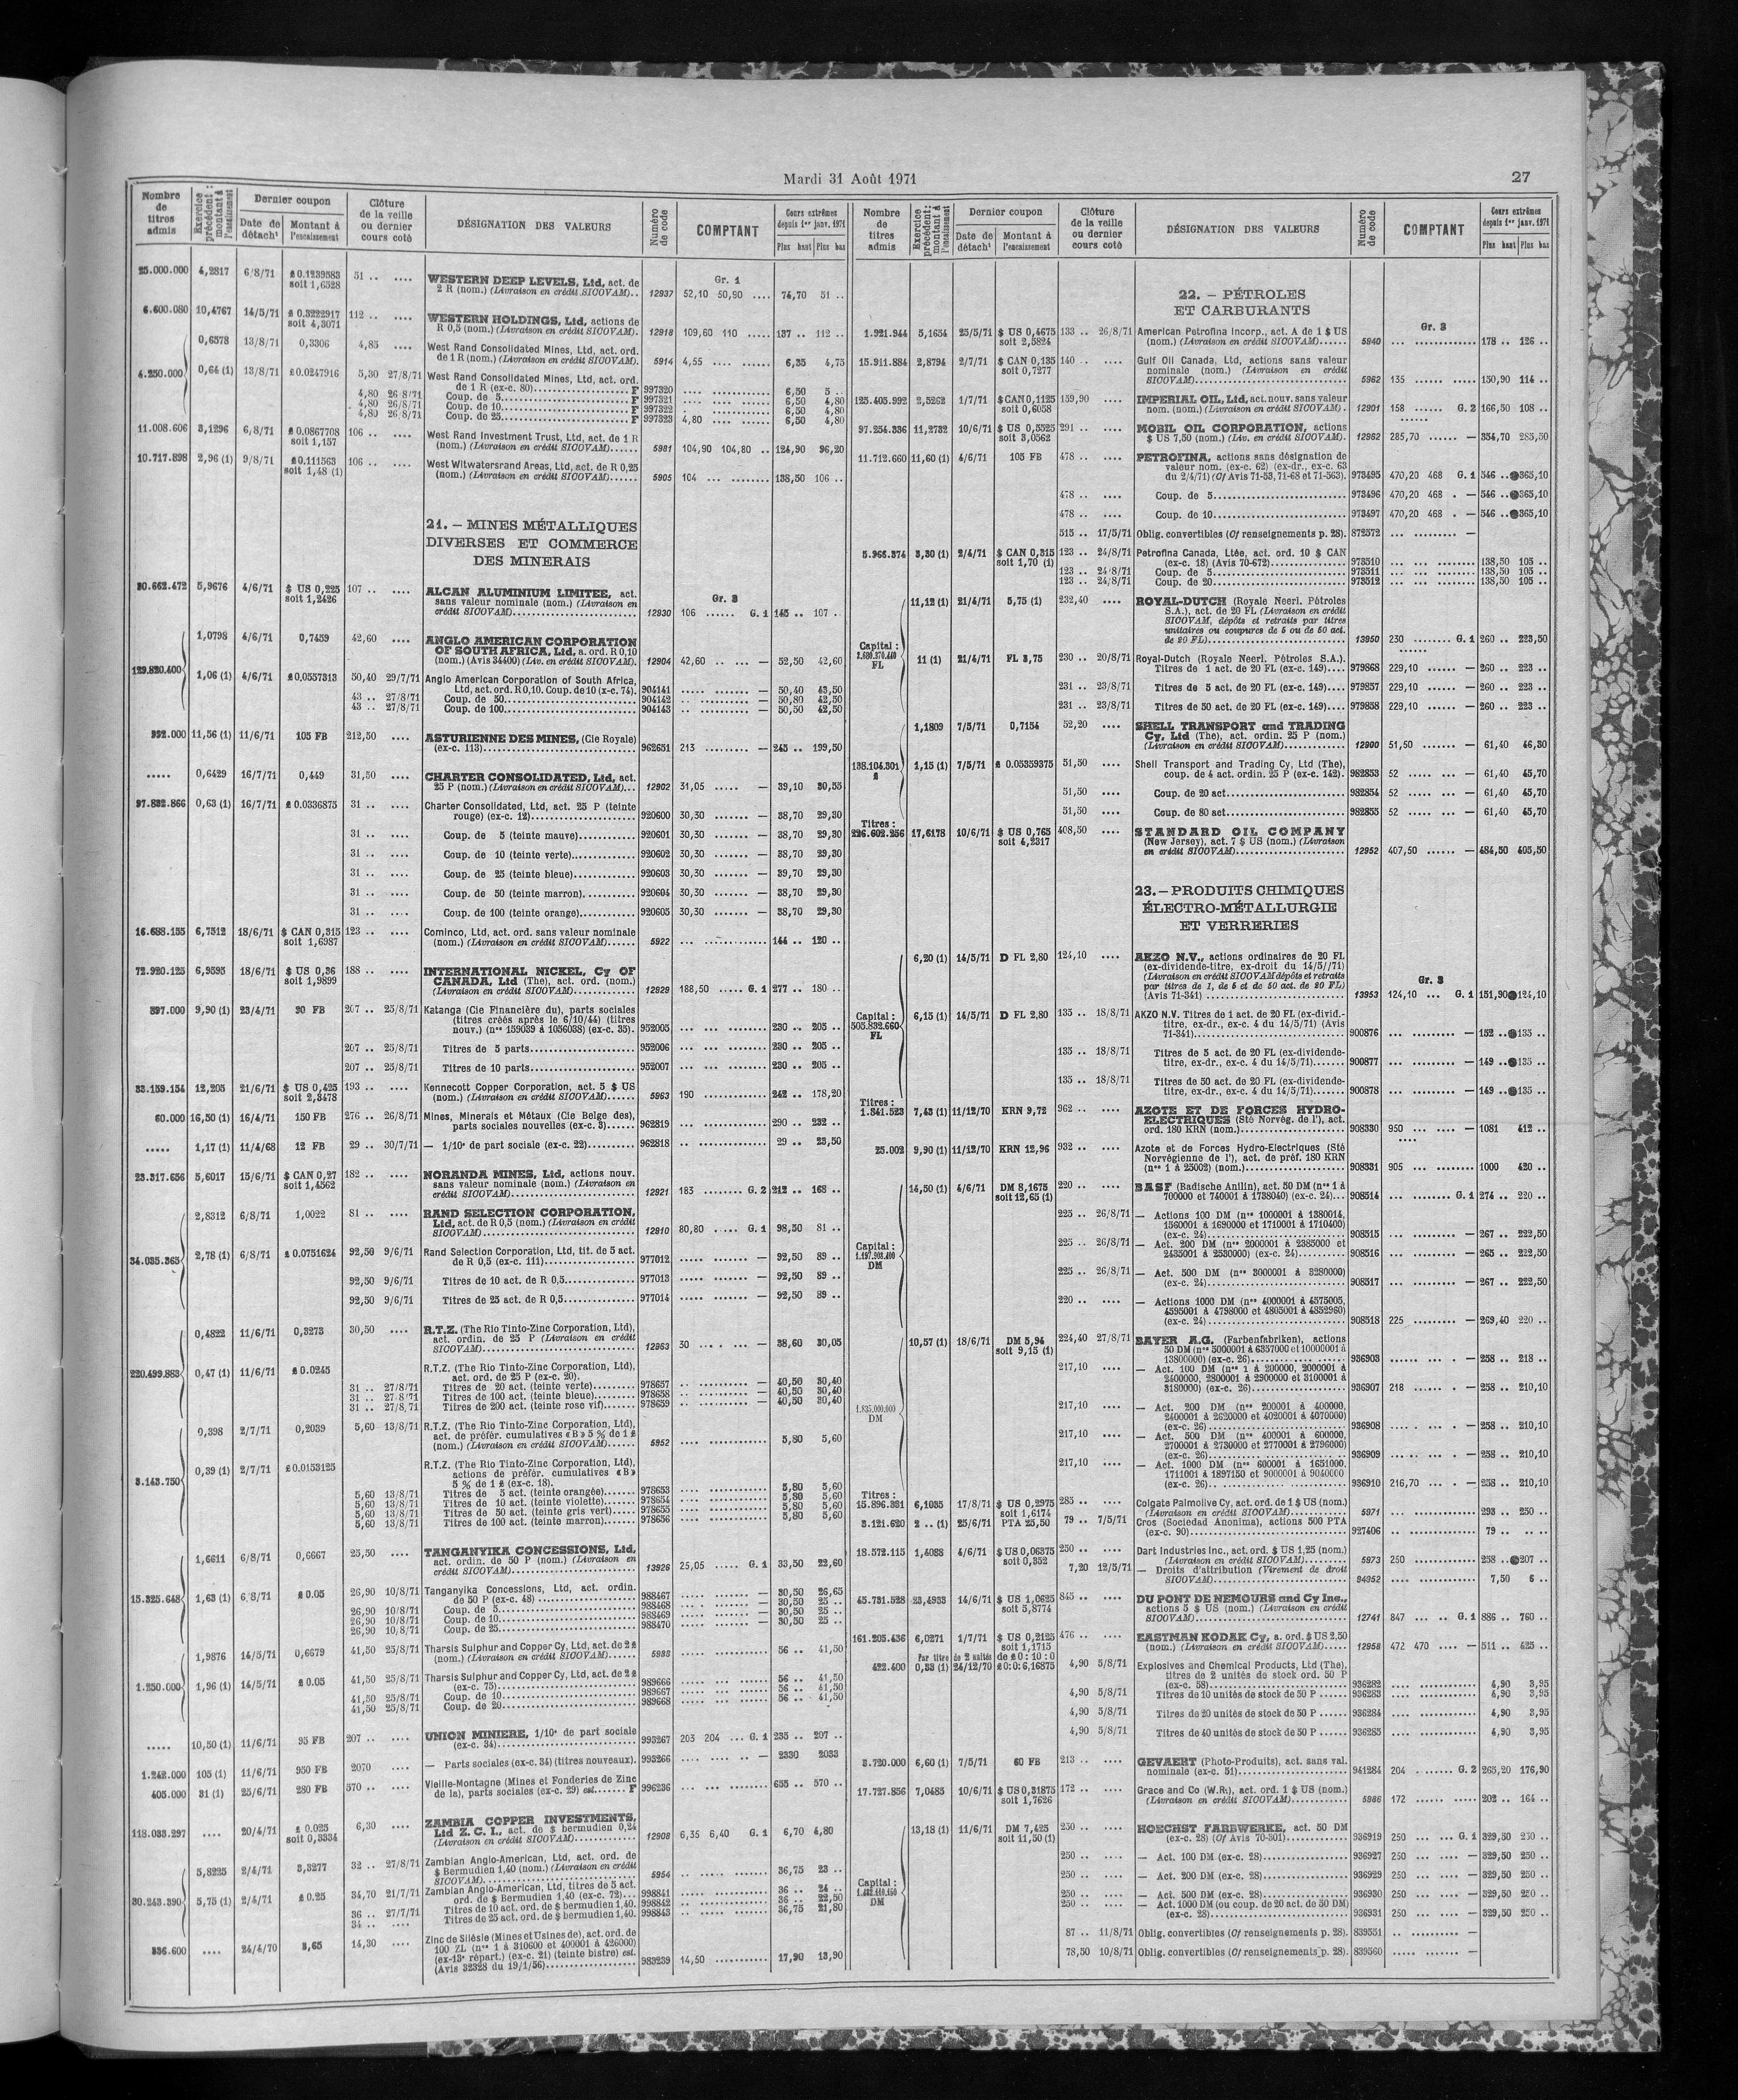 Mardi 31 Août 1971
27
Nombre de titres admis
Exercice précédent : montant à l'encaissement
Dernier coupon
Date de détach^t
Montant à l'encaissement
Clôture de la veille ou dernier cours coté
DÉSIGNATION DES VALEURS
Numéro de code
COMPTANT
Cours extrêmes depuis 1er janv. 1971
Plus haut Plus bas
25.000.000 4,2817 6/8/71 £ 0.1239583 soit 1,6528 51 .. .... WESTERN DEEP LEVELS, Ltd, act. de 2 R (nom.) (Livraison en crédit SICOVAM).. 12937 Gr. 1 52,10 50,90 .... 74,70 51 ..
6.600.080 10,4767 14/5/71 £ 0.3222917 soit 4,3071 112 .. .... WESTERN HOLDINGS, Ltd, actions de R 0,5 (nom.) (Livraison en crédit SICOVAM). 12918 109,60 110 ..... 137 .. 112 ..
0,6578 13/8/71 0,3306 4,85 .... West Rand Consolidated Mines, Ltd, act. ord. de 1 R (nom.) (Livraison en crédit SICOVAM). 5914 4,55 .... ...... 6,35 4,75
4.250.000 0,64 (1) 13/8/71 £0.0247916 5,30 27/8/71 West Rand Consolidated Mines, Ltd, act. ord. de 1 R (ex-c. 80) F 997320 6,50 5 ..
4,80 26/8/71 Coup. de 5 F 997321 6,50 4,80
4,80 26/8/71 Coup. de 10 F 997322 6,50 4,80
4,80 26/8/71 Coup. de 25 F 997323 4,80 .... 6,50 4,80
11.008.606 3,1296 6/8/71 £ 0.0867708 soit 1,157 106 .. .... West Rand Investment Trust, Ltd, act. de 1 R (nom.) (Livraison en crédit SICOVAM)...... 5981 104,90 104,80 .. 124,90 96,20
10.717.898 2,96 (1) 9/8/71 £0.111563 soit 1,48 (1) 106 .. .... West Witwatersrand Areas, Ltd, act. de R 0,25 (nom.) (Livraison en crédit SICOVAM)...... 5905 104 ... ......... 138,50 106 ..
21. – MINES MÉTALLIQUES
DIVERSES ET COMMERCE
DES MINERAIS
30.662.472 5,9676 4/6/71 $ US 0,225 soit 1,2426 107 .. .... ALCAN ALUMINIUM LIMITEE, act. sans valeur nominale (nom.) (Livraison en crédit SICOVAM) 12930 Gr. 3 106 .... G. 1 145 .. 107 ..
1,0798 4/6/71 0,7459 42,60 .... ANGLO AMERICAN CORPORATION OF SOUTH AFRICA, Ltd, a. ord. R 0,10 (nom.) (Avis 34400) (Liv. en crédit SICOVAM). 12904 42,60 .. ... — 52,50 42,60
129.820.400 1,06 (1) 4/6/71 £0,0557313 50,40 29/7/71 Anglo American Corporation of South Africa, Ltd, act. ord. R 0,10. Coup. de 10 (x-c. 74). 904141 — 50,40 43,50
43 .. 27/8/71 Coup. de 50 904142 — 50,80 42,50
43 .. 27/8/71 Coup. de 100 904143 — 50,50 42,50
932.000 11,56 (1) 11/6/71 105 FB 212,50 .... ASTURIENNE DES MINES, (Cie Royale) (ex-c. 113) 962651 213 ......... — 245 .. 199,50
..... 0,6429 16/7/71 0,449 31,50 .... CHARTER CONSOLIDATED, Ltd, act. 25 P (nom.) (Livraison en crédit SICOVAM)... 12902 31,05 ..... — 39,10 30,55
97.832.866 0,63 (1) 16/7/71 £ 0.0336875 31 .. .... Charter Consolidated, Ltd, act. 25 P (teinte rouge) (ex-c. 12) 920600 30,30 ....... — 38,70 29,30
31 .. .... Coup. de 5 (teinte mauve) 920601 30,30 ....... — 38,70 29,30
31 .. .... Coup. de 10 (teinte verte) 920602 30,30 ....... — 38,70 29,30
31 .. .... Coup. de 25 (teinte bleue) 920603 30,30 ....... — 39,70 29,30
31 .. .... Coup. de 50 (teinte marron) 920604 30,30 ....... — 38,70 29,30
31 .. .... Coup. de 100 (teinte orange) 920605 30,30 ....... — 38,70 29,30
16.688.155 6,7512 18/6/71 $ CAN 0,315 soit 1,6987 123 .. .... Cominco, Ltd, act. ord. sans valeur nominale (nom.) (Livraison en crédit SICOVAM)...... 5922 144 .. 120 ..
72.920.125 6,9595 18/6/71 $ US 0,36 soit 1,9899 188 .. .... INTERNATIONAL NICKEL, Cy OF CANADA, Ltd (The), act. ord. (nom.) (Livraison en crédit SICOVAM) 12929 188,50 ..... G. 1 277 .. 180 ..
897.000 9,90 (1) 23/4/71 90 FB 207 .. 25/8/71 Katanga (Cie Financière du), parts sociales (titres créés après le 6/10/44) (titres nouv.) (n°s 159039 à 1056038) (ex-c. 35). 952005 230 .. 205 ..
207 .. 25/8/71 Titres de 5 parts 952006 230 .. 205 ..
207 .. 25/8/71 Titres de 10 parts 952007 230 .. 205 ..
33.159.154 12,205 21/6/71 $ US 0,425 soit 2,3478 193 .. .... Kennecott Copper Corporation, act. 5 $ US (nom.) (Livraison en crédit SICOVAM)...... 5963 190 242 .. 178,20
60.000 16,50 (1) 16/4/71 150 FB 276 .. 26/8/71 Mines, Minerais et Métaux (Cie Belge des), parts sociales nouvelles (ex-c. 3) 962819 290 .. 232 ..
..... 1,17 (1) 11/4/68 12 FB 29 .. 30/7/71 — 1/10e de part sociale (ex-c. 22) 962818 29 .. 23,50
23.317.656 5,6017 15/6/71 $ CAN 0,27 soit 1,4562 182 .. .... NORANDA MINES, Ltd, actions nouv. sans valeur nominale (nom.) (Livraison en crédit SICOVAM) 12921 183 ........ G. 2 212 .. 168 ..
2,8312 6/8/71 1,0022 81 .. .... RAND SELECTION CORPORATION, Ltd, act. de R 0,5 (nom.) (Livraison en crédit SICOVAM) 12910 80,80 ..... G. 1 98,50 81 ..
34.035.365 2,78 (1) 6/8/71 £ 0.0751624 92,50 9/6/71 Rand Selection Corporation, Ltd, tit. de 5 act. de R 0,5 (ex-c. 111) 977012 — 92,50 89 ..
92,50 9/6/71 Titres de 10 act. de R 0,5 977013 — 92,50 89 ..
92,50 9/6/71 Titres de 25 act. de R 0,5 977014 — 92,50 89 ..
0,4822 11/6/71 0,3273 30,50 .... R.T.Z. (The Rio Tinto-Zinc Corporation, Ltd), act. ordin. de 25 P (Livraison en crédit SICOVAM) 12953 30 ... — 38,60 30,05
220.499.883 0,47 (1) 11/6/71 £ 0.0245 R.T.Z. (The Rio Tinto-Zinc Corporation, Ltd), act. ord. de 25 P (ex-c. 20).
31 .. 27/8/71 Titres de 20 act. (teinte verte) 978657 — 40,50 30,40
31 .. 27/8/71 Titres de 100 act. (teinte bleue) 978658 — 40,50 30,40
31 .. 27/8/71 Titres de 200 act. (teinte rose vif) 978659 — 40,50 30,40
0,398 2/7/71 0,2039 5,60 13/8/71 R.T.Z. (The Rio Tinto-Zinc Corporation, Ltd), act. de préfér. cumulatives «B» 5 % de 1 £ (nom.) (Livraison en crédit SICOVAM)...... 5952 5,80 5,60
3.143.750 0,39 (1) 2/7/71 £0.0153125 R.T.Z. (The Rio Tinto-Zinc Corporation, Ltd), actions de préfér. cumulatives «B» 5 % de 1 £ (ex-c. 18).
5,60 13/8/71 Titres de 5 act. (teinte orangée) 978653 5,80 5,60
5,60 13/8/71 Titres de 10 act. (teinte violette) 978654 5,80 5,60
5,60 13/8/71 Titres de 50 act. (teinte gris vert) 978655 5,80 5,60
5,60 13/8/71 Titres de 100 act. (teinte marron) 978656 5,80 5,60
1,6611 6/8/71 0,6667 25,50 .... TANGANYIKA CONCESSIONS, Ltd, act. ordin. de 50 P (nom.) (Livraison en crédit SICOVAM) 13926 25,05 ..... G. 1 33,50 22,60
15.325.648 1,63 (1) 6/8/71 £ 0.05 26,90 10/8/71 Tanganyika Concessions, Ltd, act. ordin. de 50 P (ex-c. 48) 988467 — 30,50 26,65
26,90 10/8/71 Coup. de 5 988468 — 30,50 25 ..
26,90 10/8/71 Coup. de 10 988469 — 30,50 25 ..
26,90 10/8/71 Coup. de 25 988470 — 30,50 25 ..
1,9876 14/5/71 0,6679 41,50 25/8/71 Tharsis Sulphur and Copper Cy, Ltd, act. de 2 £ (nom.) (Livraison en crédit SICOVAM)...... 5933 56 .. 41,50
1.250.000 1,96 (1) 14/5/71 £ 0.05 41,50 25/8/71 Tharsis Sulphur and Copper Cy, Ltd, act. de 2 £ (ex-c. 75) 989666 56 .. 41,50
41,50 25/8/71 Coup. de 10 989667 56 .. 41,50
41,50 25/8/71 Coup. de 20 989668 56 .. 41,50
..... 10,50 (1) 11/6/71 95 FB 207 .. .... UNION MINIERE, 1/10e de part sociale (ex-c. 34) 993267 203 204 ... G. 1 235 .. 207 ..
1.242.000 105 (1) 11/6/71 950 FB 2070 — Parts sociales (ex-c. 34) (titres nouveaux). 993266 — 2330 2033
405.000 31 (1) 25/6/71 280 FB 570 .. .... Vieille-Montagne (Mines et Fonderies de Zinc de la), parts sociales (ex-c. 29) est. F 996236 655 .. 570 ..
118.033.297 .... 20/4/71 £ 0.025 soit 0,3334 6,30 .... ZAMBIA COPPER INVESTMENTS, Ltd Z. C. I., act. de $ bermudien 0,24 (Livraison en crédit SICOVAM) 12908 6,35 6,40 G. 1 6,70 4,80
5,8225 2/4/71 3,3277 32 .. 27/8/71 Zambian Anglo-American, Ltd, act. ord. de $ Bermudien 1,40 (nom.) (Livraison en crédit SICOVAM) 5954 36,75 23 ..
30.243.390 5,75 (1) 2/4/71 £ 0.25 34,70 21/7/71 Zambian Anglo-American, Ltd, titres de 5 act. ord. de $ Bermudien 1,40 (ex-c. 72)... 998841 36 .. 24 ..
36 .. 27/7/71 Titres de 10 act. ord. de $ bermudien 1,40. 998842 36 .. 22,50
34 .. .... Titres de 25 act. ord. de $ bermudien 1,40. 998843 36,75 21,80
336.600 .... 24/4/70 3,65 14,30 .... Zinc de Silésie (Mines et Usines de), act. ord. de 100 ZL (n°s 1 à 310600 et 400001 à 426000) (ex-13e répart.) (ex-c. 21) (teinte bistre) est. (Avis 32328 du 19/1/56) 983239 14,50 17,90 13,90
Nombre de titres admis
Exercice précédent : montant à l'encaissement
Dernier coupon
Date de détach^t
Montant à l'encaissement
Clôture de la veille ou dernier cours coté
DÉSIGNATION DES VALEURS
Numéro de code
COMPTANT
Cours extrêmes depuis 1er janv. 1971
Plus haut Plus bas
22. – PÉTROLES
ET CARBURANTS
1.921.944 5,1654 25/5/71 $ US 0,4675 soit 2,5824 133 .. 26/8/71 American Petrofina Incorp., act. A de 1 $ US (nom.) (Livraison en crédit SICOVAM)...... 5940 Gr. 3 178 .. 126 ..
15.911.884 2,8794 2/7/71 $ CAN 0,135 soit 0,7277 140 .. .... Gulf Oil Canada, Ltd, actions sans valeur nominale (nom.) (Livraison en crédit SICOVAM) 5962 135 150,90 114 ..
125.405.992 2,5262 1/7/71 $ CAN 0,1125 soit 0,6058 159,90 IMPERIAL OIL, Ltd, act. nouv. sans valeur nom. (nom.) (Livraison en crédit SICOVAM) . 12901 158 ...... G. 2 166,50 108 ..
97.254.336 11,2732 10/6/71 $ US 0,5525 soit 3,0562 291 .. .... MOBIL OIL CORPORATION, actions $ US 7,50 (nom.) (Liv. en crédit SICOVAM). 12962 285,70 ...... — 354,70 285,50
11.712.660 11,60 (1) 4/6/71 105 FB 478 .. .... PETROFINA, actions sans désignation de valeur nom. (ex-c. 62) (ex-dr., ex-c. 63 du 2/4/71) (Cf Avis 71-53, 71-68 et 71-563). 973495 470,20 468 G. 1 546 ..●365,10
478 .. .... Coup. de 5 973496 470,20 468 . — 546 ..●365,10
478 .. .... Coup. de 10 973497 470,20 468 . — 546 ..●365,10
515 .. 17/5/71 Oblig. convertibles (Cf renseignements p. 28). 872572 —
5.966.374 3,30 (1) 2/4/71 $ CAN 0,315 soit 1,70 (1) 123 .. 24/8/71 Petrofina Canada, Ltée, act. ord. 10 $ CAN (ex-c. 18) (Avis 70-672) 973510 138,50 105 ..
123 .. 24/8/71 Coup. de 5 973511 138,50 105 ..
123 .. 24/8/71 Coup. de 20 973512 138,50 105 ..
11,12 (1) 21/4/71 5,75 (1) 232,40 .... ROYAL-DUTCH (Royale Neerl. Pétroles S.A.), act. de 20 FL (Livraison en crédit SICOVAM, dépôts et retraits par titres unitaires ou coupures de 5 ou de 50 act. de 20 FL) 13950 230 ........ G. 1 260 .. 223,50
Capital : FL
11 (1) 21/4/71 FL 3,75 230 .. 20/8/71 Royal-Dutch (Royale Neerl. Pétroles S.A.). Titres de 1 act. de 20 FL (ex-c. 149).... 979868 229,10 ...... — 260 .. 223 ..
231 .. 23/8/71 Titres de 5 act. de 20 FL (ex-c. 149).... 979857 229,10 ...... — 260 .. 223 ..
231 .. 23/8/71 Titres de 50 act. de 20 FL (ex-c. 149).... 979858 229,10 ...... — 260 .. 223 ..
1,1809 7/5/71 0,7154 52,20 .... SHELL TRANSPORT and TRADING Cy, Ltd (The), act. ordin. 25 P (nom.) (Livraison en crédit SICOVAM) 12900 51,50 ....... — 61,40 46,30
138.104.301 £ 1,15 (1) 7/5/71 £ 0.05359375 51,50 .... Shell Transport and Trading Cy, Ltd (The), coup. de 4 act. ordin. 25 P (ex-c. 142). 982853 52 ..... ... — 61,40 45,70
51,50 .... Coup. de 20 act 982854 52 ..... ... — 61,40 45,70
51,50 .... Coup. de 80 act 982855 52 ..... ... — 61,40 45,70
Titres :
226.602.256 17,6178 10/6/71 $ US 0,765 soit 4,2317 408,50 .... STANDARD OIL COMPANY (New Jersey), act. 7 $ US (nom.) (Livraison en crédit SICOVAM) 12952 407,50 ...... — 484,50 405,50
23. – PRODUITS CHIMIQUES
ÉLECTRO-MÉTALLURGIE
ET VERRERIES
6,20 (1) 14/5/71 D FL 2,80 124,10 .... AKZO N.V., actions ordinaires de 20 FL (ex-dividende-titre, ex-droit du 14/5//71) (Livraison en crédit SICOVAM dépôts et retraits par titres de 1, de 5 et de 50 act. de 20 FL) (Avis 71-341) 13953 Gr. 3 124,10 ... G. 1 151,90●124,10
Capital : 505.832.660 FL
6,15 (1) 14/5/71 D FL 2,80 135 .. 18/8/71 AKZO N.V. Titres de 1 act. de 20 FL (ex-divid.-titre, ex-dr., ex-c. 4 du 14/5/71) (Avis 71-341) 900876 — 152 ..●135 ..
135 .. 18/8/71 Titres de 5 act. de 20 FL (ex-dividende-titre, ex-dr., ex-c. 4 du 14/5/71)...... 900877 — 149 ..●135 ..
135 .. 18/8/71 Titres de 50 act. de 20 FL (ex-dividende-titre, ex-dr., ex-c. 4 du 14/5/71)...... 900878 — 149 ..●135 ..
Titres :
1.841.523 7,43 (1) 11/12/70 KRN 9,72 962 .. .... AZOTE ET DE FORCES HYDRO-ELECTRIQUES (Sté Norvég. de l'), act. ord. 180 KRN (nom.) 908330 950 1081 412 ..
25.002 9,90 (1) 11/12/70 KRN 12,96 932 .. .... Azote et de Forces Hydro-Electriques (Sté Norvégienne de l'), act. de préf. 180 KRN (n°s 1 à 25002) (nom.) 908331 905 1000 420 ..
14,50 (1) 4/6/71 DM 8,1675 soit 12,65 (1) 220 .. .... BASF (Badische Anilin), act. 50 DM (n°s 1 à 700000 et 740001 à 1738040) (ex-c. 24)... 908514 G. 1 274 .. 220 ..
225 .. 26/8/71 — Actions 100 DM (n°s 1000001 à 1380014, 1560001 à 1690000 et 1710001 à 1710400) (ex-c. 24) 908515 — 267 .. 222,50
Capital : DM
225 .. 26/8/71 — Act. 200 DM (n°s 2000001 à 2385000 et 2435001 à 2530000) (ex-c. 24) 908516 — 265 .. 222,50
225 .. 26/8/71 — Act. 500 DM (n°s 3000001 à 3280000) (ex-c. 24) 908517 — 267 .. 222,50
220 .. .... — Actions 1000 DM (n°s 4000001 à 4575005, 4595001 à 4798000 et 4805001 à 4852960) (ex-c. 24) 908518 225 — 269,40 220 ..
10,57 (1) 18/6/71 DM 5,94 soit 9,15 (1) 224,40 27/8/71 BAYER A.G. (Farbenfabriken), actions 50 DM (n°s 5000001 à 6357000 et 10000001 à 13800000) (ex-c. 26) 936903 — 258 .. 218 ..
217,10 .... — Act. 100 DM (n°s 1 à 200000, 2000001 à 2400000, 2800001 à 2900000 et 3100001 à 3180000) (ex-c. 26) 936907 218 — 258 .. 210,10
1.835.000.000 DM
217,10 .... — Act. 200 DM (n°s 200001 à 400000, 2400001 à 2620000 et 4020001 à 4070000) (ex-c. 26) 936908 — 258 .. 210,10
217,10 .... — Act. 500 DM (n°s 400001 à 600000, 2700001 à 2730000 et 2770001 à 2796000) (ex-c. 26) 936909 — 258 .. 210,10
217,10 .... — Act. 1000 DM (n°s 600001 à 1651000, 1711001 à 1897150 et 9000001 à 9040000 (ex-c. 26) 936910 216,70 — 258 .. 210,10
Titres :
15.896.381 6,1035 17/8/71 $ US 0,2975 soit 1,6174 285 .. .... Colgate Palmolive Cy, act. ord. de 1 $ US (nom.) (Livraison en crédit SICOVAM) 5971 293 .. 250 ..
3.121.620 2 .. (1) 25/6/71 PTA 25,50 79 .. 7/5/71 Cros (Sociedad Anonima), actions 500 PTA (ex-c. 90) 927406 79 .. .. ..
18.572.115 1,4088 4/6/71 $ US 0,06375 soit 0,352 250 .. .... Dart Industries Inc., act. ord. $ US 1,25 (nom.) (Livraison en crédit SICOVAM) 5973 250 258 ..●207 ..
7,20 12/5/71 — Droits d'attribution (Virement de droit SICOVAM) 84952 7,50 6 ..
45.731.528 23,4933 14/6/71 $ US 1,0625 soit 5,8774 845 .. .... DU PONT DE NEMOURS and Cy Inc., actions 5 $ US (nom.) (Livraison en crédit SICOVAM) 12741 847 ... .. G. 1 886 .. 760 ..
161.205.436 6,0271 1/7/71 $ US 0,2125 soit 1,1715 476 .. .... EASTMAN KODAK Cy, a. ord. $ US 2,50 (nom.) (Livraison en crédit SICOVAM)..... 12958 472 470 .... — 511 .. 425 ..
Par titre de 2 unités de £ 0 : 10 : 0
422.400 0,33 (1) 24/12/70 £0:0:6,16875 4,90 5/8/71 Explosives and Chemical Products, Ltd (The), titres de 2 unités de stock ord. 50 P (ex-c. 58) 936282 4,90 3,95
4,90 5/8/71 Titres de 10 unités de stock de 50 P ...... 936283 4,90 3,95
4,90 5/8/71 Titres de 20 unités de stock de 50 P ...... 936284 4,90 3,95
4,90 5/8/71 Titres de 40 unités de stock de 50 P ...... 936285 4,90 3,95
3.720.000 6,60 (1) 7/5/71 60 FB 213 .. .... GEVAERT (Photo-Produits), act. sans val. nominale (ex-c. 51) 941284 204 G. 2 265,20 176,90
17.727.856 7,0485 10/6/71 $ US 0,31875 soit 1,7626 172 .. .... Grace and Co (W.R.), act. ord. 1 $ US (nom.) (Livraison en crédit SICOVAM) 5986 172 202 .. 164 ..
13,18 (1) 11/6/71 DM 7,425 soit 11,50 (1) 250 .. .... HOECHST FARBWERKE, act. 50 DM (ex-c. 28) (Cf Avis 70-301) 936919 250 ... ... G. 1 329,50 250 ..
250 .. .... — Act. 100 DM (ex-c. 28) 936927 250 — 329,50 250 ..
250 .. .... — Act. 200 DM (ex-c. 28) 936929 250 — 329,50 250 ..
Capital : DM
250 .. .... — Act. 500 DM (ex-c. 28) 936930 250 — 329,50 250 ..
250 .. .... — Act. 1000 DM (ou coup. de 20 act. de 50 DM) (ex-c. 28) 936931 250 — 329,50 250 ..
87 .. 11/8/71 Oblig. convertibles (Cf renseignements p. 28). 839551 —
78,50 10/8/71 Oblig. convertibles (Cf renseignements p. 28). 839560 —